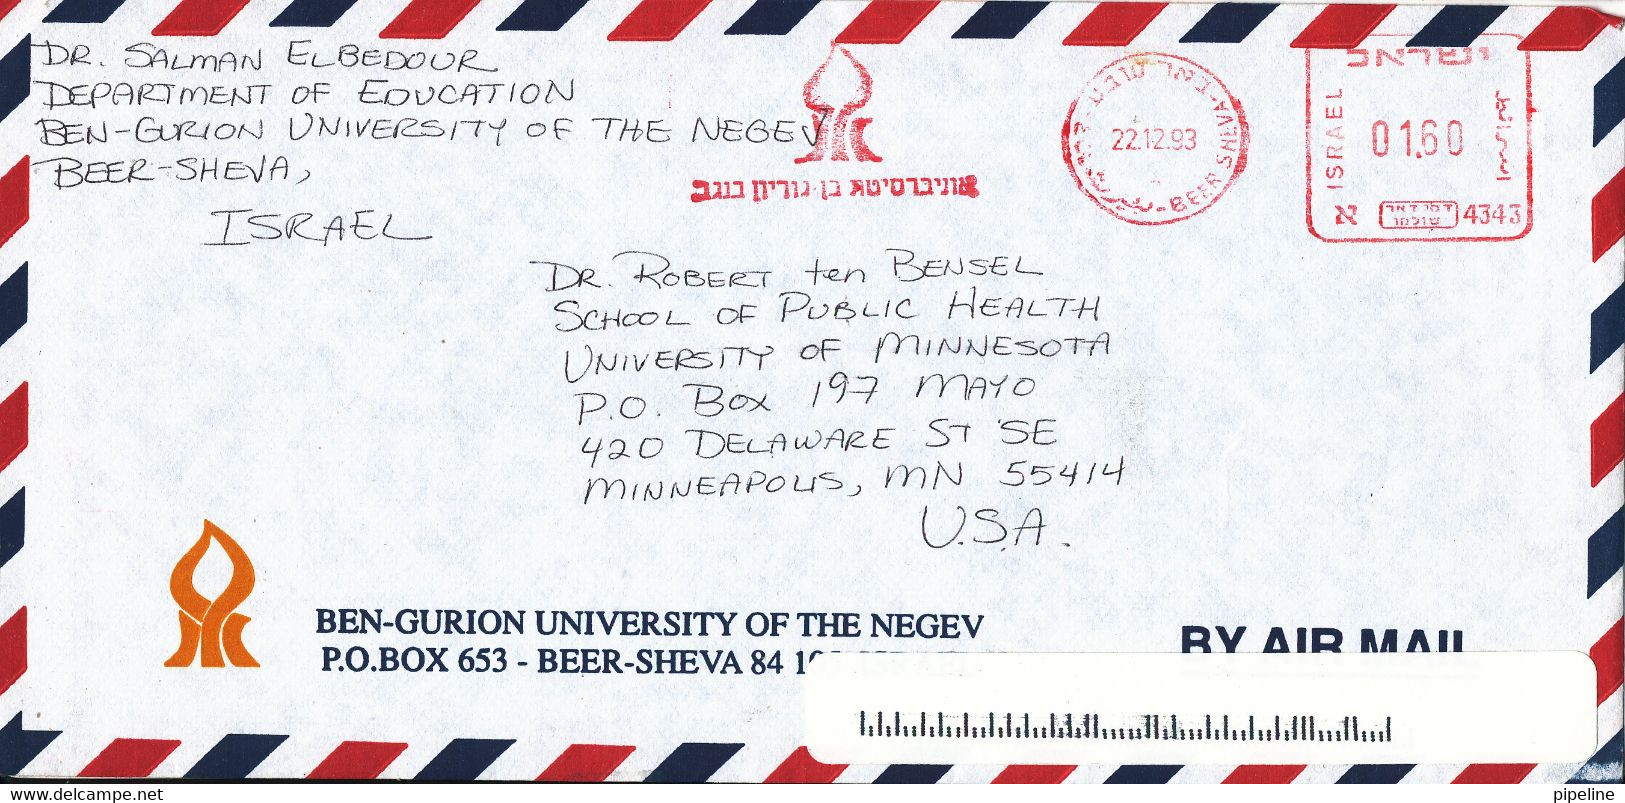 DR. SALMAN ELBEDOUR
DEPARTMENT OF EDUCATION
BEN-GURION UNIVERSITY OF THE NEGEV
BEER-SHEVA,
ISRAEL
אוניברסיטת בן-גוריון בנגב
22.12.93
BEER SHEVA
ישראל
ISRAEL
01.60
اسرائيل
א
דמי דאר
שולמו
4343
DR. ROBERT ten BENSEL
SCHOOL OF PUBLIC HEALTH
UNIVERSITY OF MINNESOTA
P.O. BOX 197 MAYO
420 DELAWARE ST SE
MINNEAPOLIS, MN 55414
U.S.A.
BEN-GURION UNIVERSITY OF THE NEGEV
P.O.BOX 653 - BEER-SHEVA 84
BY AIR MAIL
www.delcampe.net
pipeline